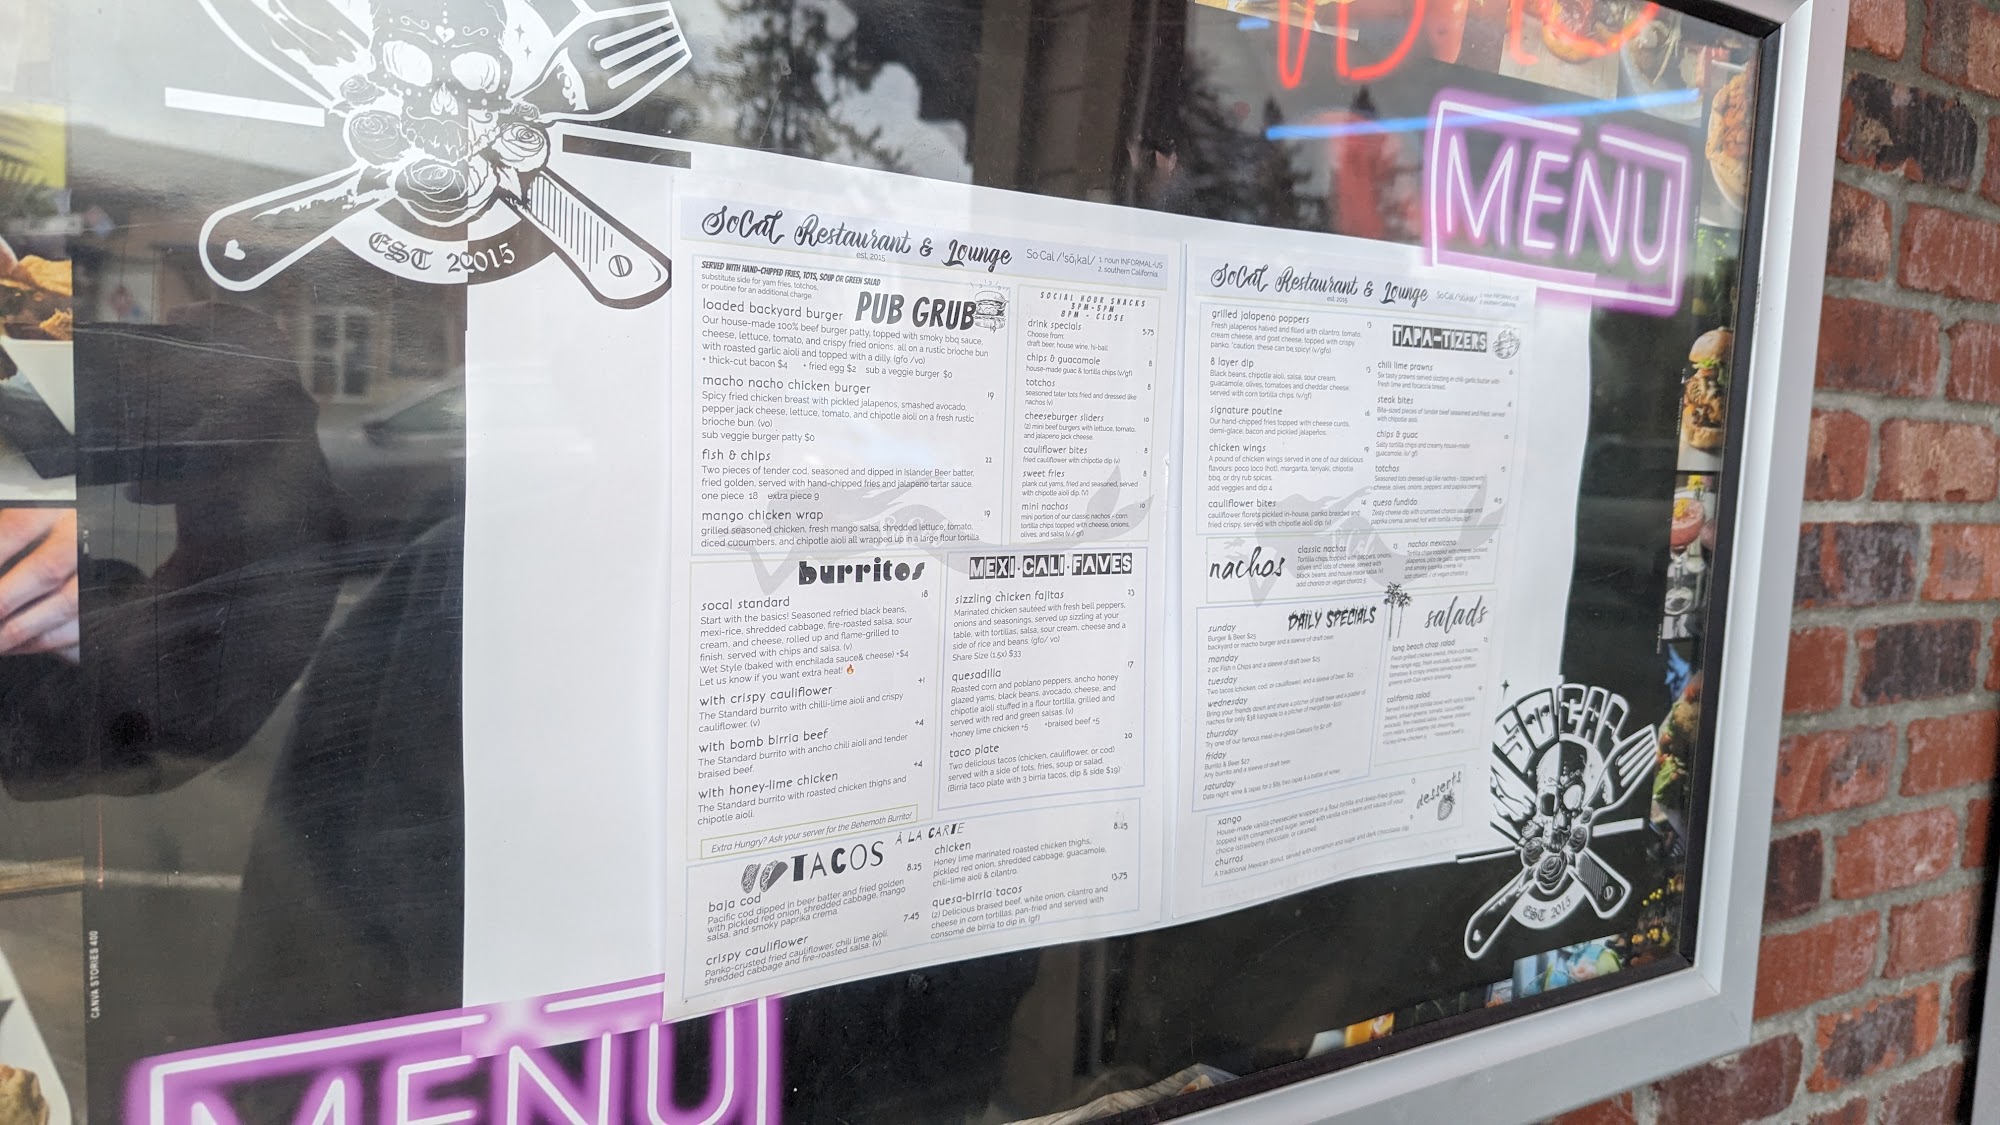 EST 2015
MENU
SoCal Restaurant & Lounge
est. 2015
So Cal /'sō,kal/
1. noun INFORMAL-US
2. southern California.
SERVED WITH HAND-CHIPPED FRIES, TOTS, SOUP OR GREEN SALAD
substitute side for yam fries, totchos,
or poutine for an additional charge.
PUB GRUB
loaded backyard burger 19
Our house-made 100% beef burger patty, topped with smoky bbq sauce,
cheese, lettuce, tomato, and crispy fried onions, all on a rustic brioche bun
with roasted garlic aioli and topped with a dilly. (gfo /vo)
+ thick-cut bacon $4 + fried egg $2 sub a veggie burger $0
macho nacho chicken burger 19
Spicy fried chicken breast with pickled jalapenos, smashed avocado,
pepper jack cheese, lettuce, tomato, and chipotle aioli on a fresh rustic
brioche bun. (vo)
sub veggie burger patty $0
fish & chips 22
Two pieces of tender cod, seasoned and dipped in Islander Beer batter,
fried golden, served with hand-chipped fries and jalapeno tartar sauce.
one piece 18 extra piece 9
mango chicken wrap 19
grilled seasoned chicken, fresh mango salsa, shredded lettuce, tomato,
diced cucumbers, and chipotle aioli all wrapped up in a large flour tortilla.
SOCIAL HOUR SNACKS
3PM-5PM
8PM - CLOSE
drink specials 5.75
Choose from:
draft beer, house wine, hi-ball
chips & guacamole 8
house-made guac & tortilla chips (v/gf)
totchos 8
seasoned tater tots fried and dressed like
nachos (v)
cheeseburger sliders 10
(2) mini beef burgers with lettuce, tomato,
and jalapeno jack cheese.
cauliflower bites 8
fried cauliflower with chipotle dip (v)
sweet fries 8
plank cut yams, fried and seasoned, served
with chipotle aioli dip. (v)
mini nachos 10
mini portion of our classic nachos - corn
tortilla chips topped with cheese, onions,
olives, and salsa (v / gf)
burritos
socal standard 18
Start with the basics! Seasoned refried black beans,
mexi-rice, shredded cabbage, fire-roasted salsa, sour
cream, and cheese, rolled up and flame-grilled to
finish, served with chips and salsa. (v)
Wet Style (baked with enchilada sauce& cheese) +$4
Let us know if you want extra heat! 🔥
with crispy cauliflower +1
The Standard burrito with chilli-lime aioli and crispy
cauliflower. (v)
with bomb birria beef +4
The Standard burrito with ancho chili aioli and tender
braised beef.
with honey-lime chicken +4
The Standard burrito with roasted chicken thighs and
chipotle aioli.
Extra Hungry? Ask your server for the Behemoth Burrito!
MEXI·CALI·FAVES
sizzling chicken fajitas 23
Marinated chicken sautéed with fresh bell peppers,
onions and seasonings, served up sizzling at your
table, with tortillas, salsa, sour cream, cheese and a
side of rice and beans. (gfo/ vo)
Share Size (1.5x) $33
quesadilla 17
Roasted corn and poblano peppers, ancho honey
glazed yams, black beans, avocado, cheese, and
chipotle aioli stuffed in a flour tortilla, grilled and
served with red and green salsas. (v)
+honey lime chicken +5 +braised beef +5
taco plate 20
Two delicious tacos (chicken, cauliflower, or cod)
served with a side of tots, fries, soup or salad.
(Birria taco plate with 3 birria tacos, dip & side $19)
TACOS À LA CARTE
baja cod 8.25
Pacific cod dipped in beer batter and fried golden
with pickled red onion, shredded cabbage, mango
salsa, and smoky paprika crema.
crispy cauliflower 7.45
Panko-crusted fried cauliflower, chili lime aioli,
shredded cabbage and fire-roasted salsa. (v)
chicken 8.25
Honey lime marinated roasted chicken thighs,
pickled red onion, shredded cabbage, guacamole,
chili-lime aioli & cilantro.
quesa-birria tacos 13.75
(2) Delicious braised beef, white onion, cilantro and
cheese in corn tortillas, pan-fried and served with
consome de birria to dip in. (gf)
SoCal Restaurant & Lounge
est. 2015
TAPA-TIZERS
grilled jalapeno poppers
Fresh jalapenos halved and filled with cilantro, tomato,
cream cheese, and goat cheese, topped with crispy
panko. *caution: these can be spicy! (v/gfo)
8 layer dip
Black beans, chipotle aioli, salsa, sour cream,
guacamole, olives, tomatoes and cheddar cheese
served with corn tortilla chips. (v/gf)
signature poutine
Our hand-chipped fries topped with cheese curds,
demi-glace, bacon and pickled jalapeños.
chicken wings
A pound of chicken wings served in one of our delicious
flavours: poco loco (hot), margarita, teriyaki, chipotle
bbq, or dry rub spices.
add veggies and dip 4
cauliflower bites
cauliflower florets pickled in-house, panko breaded and
fried crispy, served with chipotle aioli dip. (v)
chili lime prawns
Six tasty prawns served sizzling in chili garlic butter with
fresh lime and focaccia bread.
steak bites
Bite-sized pieces of tender beef seasoned and fried, served
with chipotle aioli.
chips & guac
Salty tortilla chips and creamy house-made
guacamole. (v/ gf)
totchos
Seasoned tots dressed-up like nachos - topped with
cheese, olives, onions, peppers, and paprika crema
queso fundido
Zesty cheese dip with crumbled chorizo sausage and
paprika crema, served hot with tortilla chips. (gf)
nachos
classic nachos
Tortilla chips topped with peppers, onions,
olives and lots of cheese, served with
black beans, and house made salsa.
add chorizo or vegan chorizo 5
nachos mexicano
DAILY SPECIALS
sunday
Burger & Beer $25
backyard or macho burger and a sleeve of draft beer.
monday
2 pc Fish n Chips and a sleeve of draft beer $25
tuesday
Two tacos (chicken, cod, or cauliflower, and a sleeve of beer, $21
wednesday
Bring your friends down and share a pitcher of draft beer and a platter of
nachos for only $38
thursday
Try one of our famous meal-in-a-glass Caesars for $2 off!
friday
Burrito & Beer $27
Any burrito and a sleeve of draft beer
saturday
Date night: wine & tapas for 2
salads
long beach chop salad
california salad
desserts
xango
House-made vanilla cheesecake wrapped in a flour tortilla and deep-fried golden,
topped with cinnamon and sugar, served with vanilla ice cream and sauce of your
choice (strawberry, chocolate, or caramel).
churros
A traditional Mexican donut, served with cinnamon and sugar and dark chocolate dip
SOCAL
EST 2015
CANVA STORIES 400
MENU